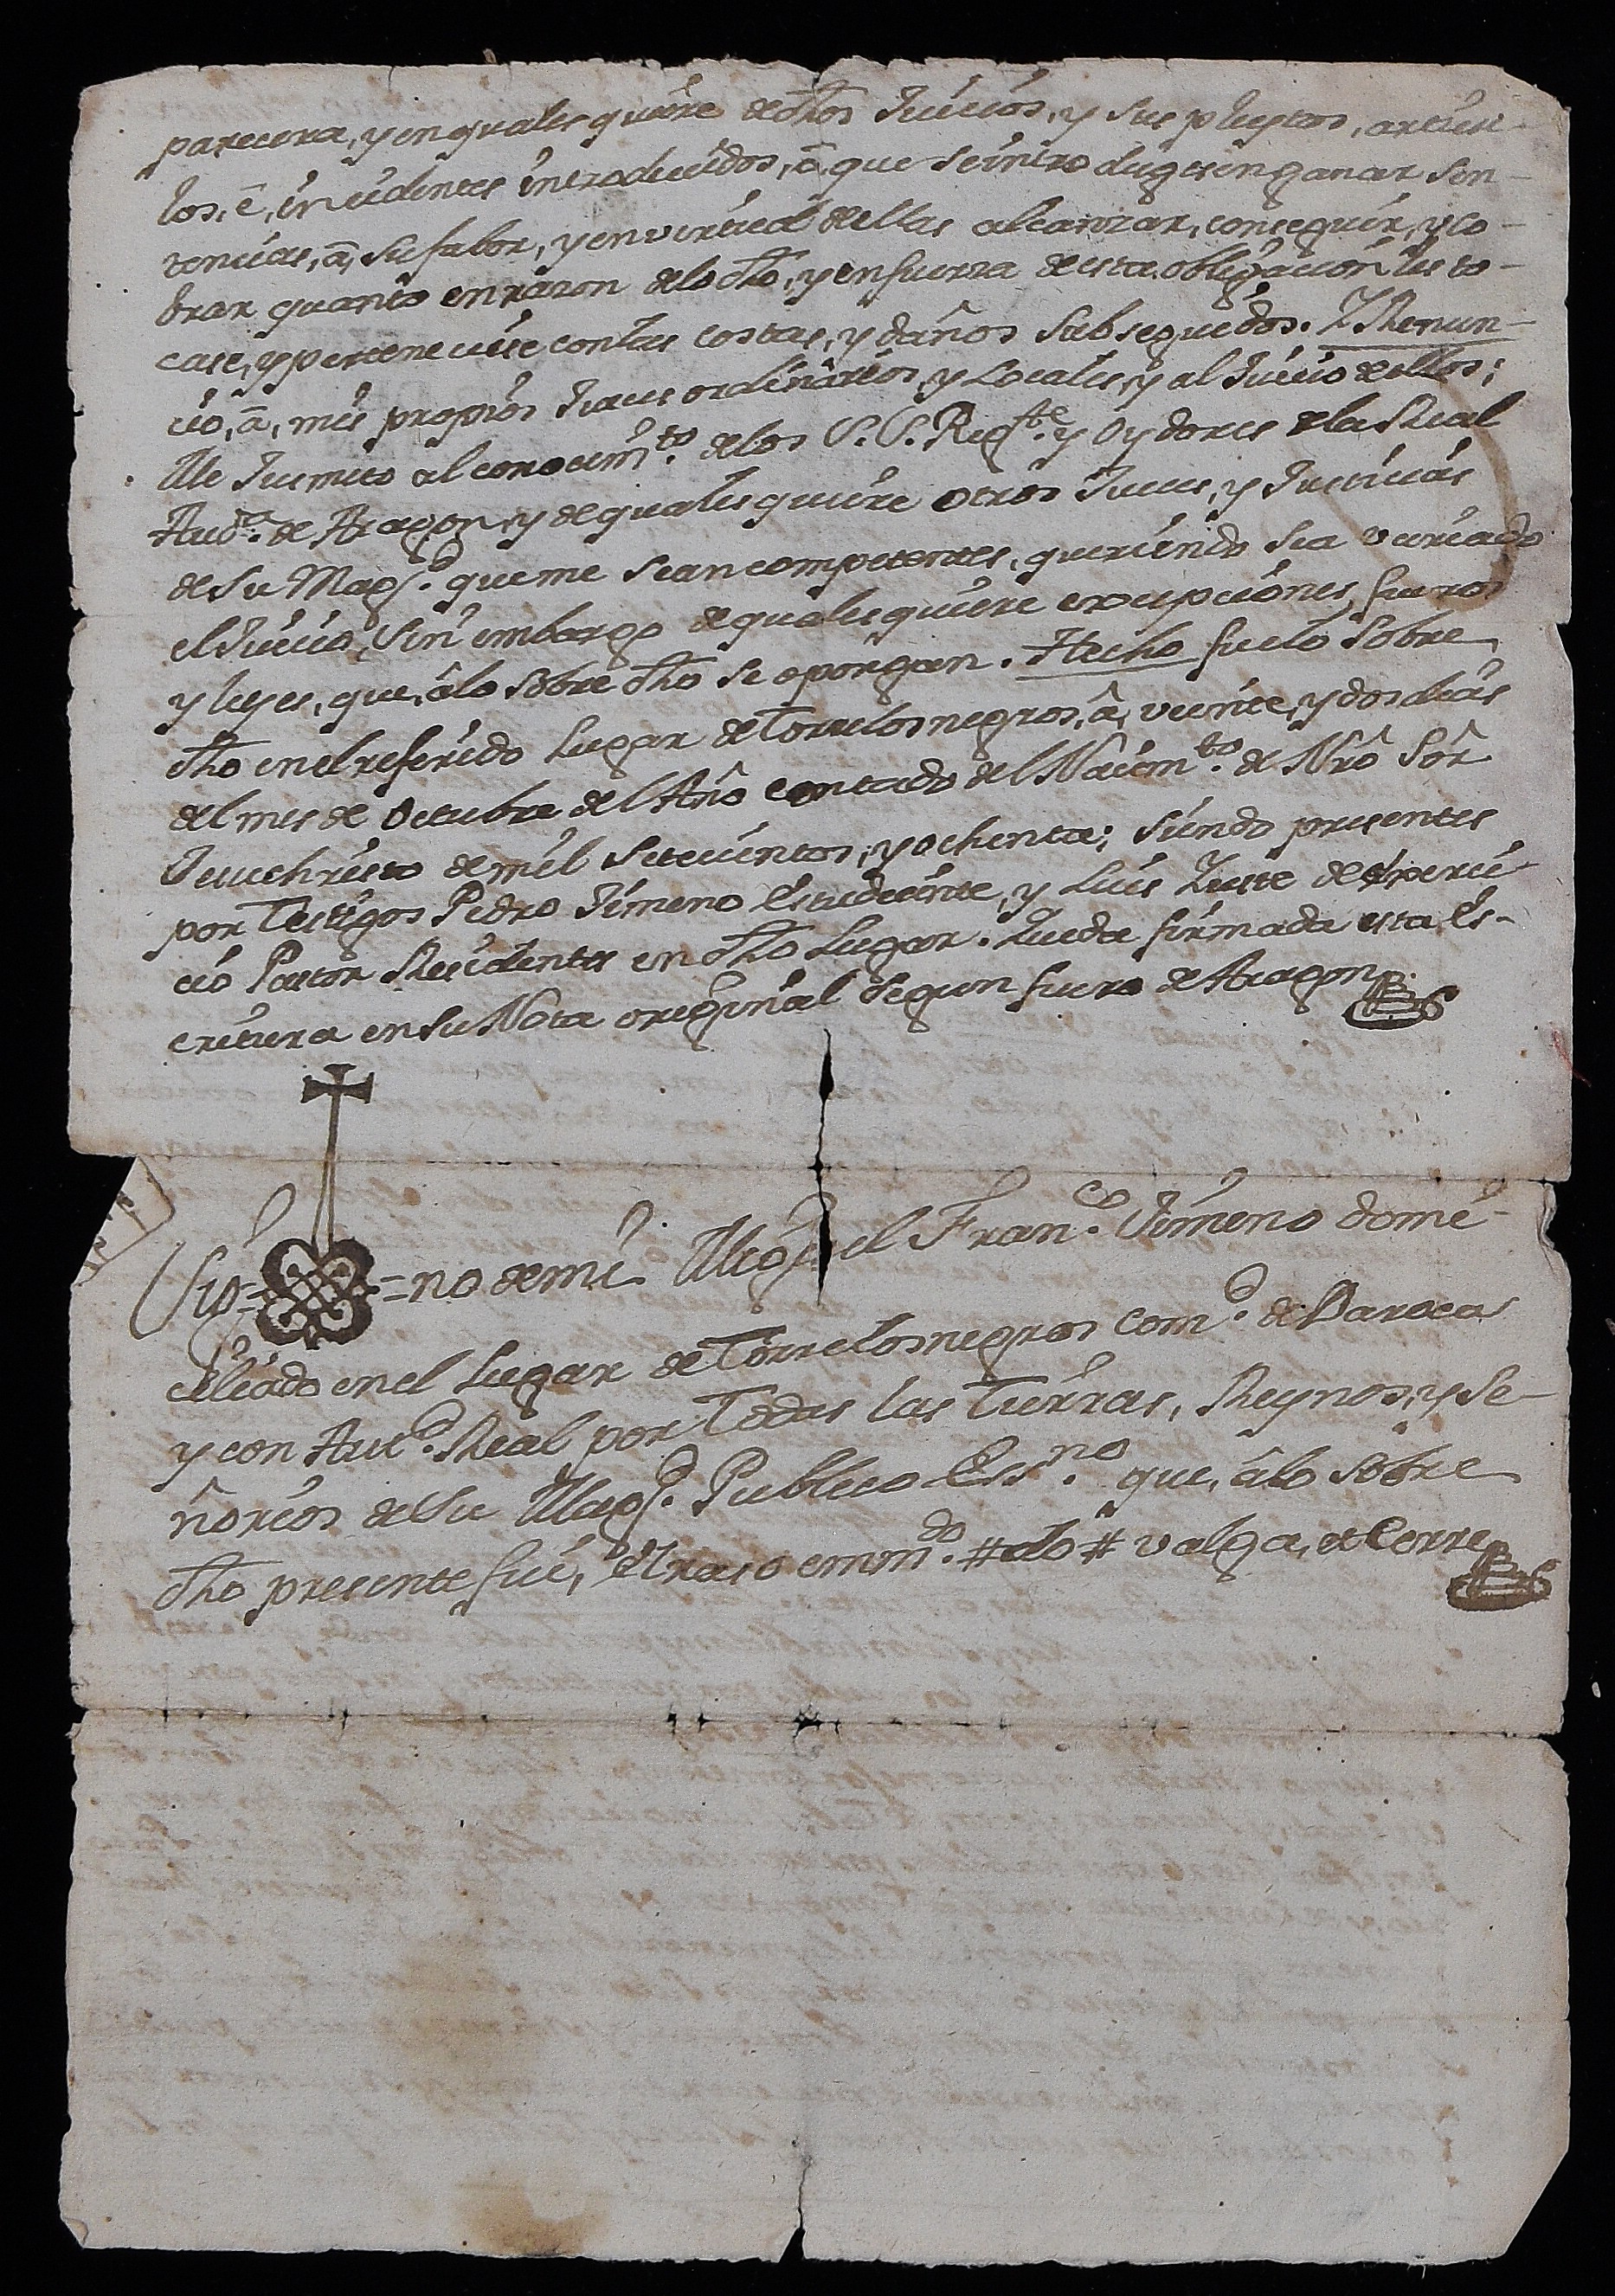 parecera, y en quales quiere de dhos Juicios, y sus pleytos, articu-
los, é, incidentes introducidos, ó, que se introdugesen ganar sen-
tencias, â, su fabor, y en virtud dellas alcanzar, conseguir, y co-
brar quanto en razon de lo dho, y en fuerza de esta obligacion les to-
case, y perteneciese con las costas, y daños subseguidos. Y Renun-
cio, â, mis propios Jueces ordinarios, y Locales, y al Juicio dellos;
Me Jusmeto al conocim.to de los S.S. Reg.te y Oydores de la Real
Aud.a de Aragon, y de quales quiere otros Jueces, y Justicias
de Su Mag.d que me sean competentes, queriendo sea variado
el Juicio, sin embargo de quales quiere excepciones, fueros
y leyes, que, â lo sobre dho se opongan. Hecho fue lo sobre
dho en el referido Lugar de Torrelosnegros, â, veinte, y dos dias
del mes de Octubre del Año contado del Nacim.to de Nrô Sôr
Jesuchristo de mil setecientos, y ochenta; siendo presentes
por Testigos Pedro Jimeno Estudiante, y Luis Juste de exerci-
cio Pastor Residentes en dho Lugar. Queda firmada esta Es-
critura en su Nota original segun fuero de Aragon.
Sig= =no de mi Miguel Fran.co Jimeno domi-
ciliado en el Lugar de Torrelosnegros Com.d de Daroca
y con Aut.d Real por Todas las Tierras, Reynos, y Se-
ñorios de Su Mag.d Publico Ess.no que, â lo sobre
dho presente fui, el raso enm.do # do # valga, et Cerre